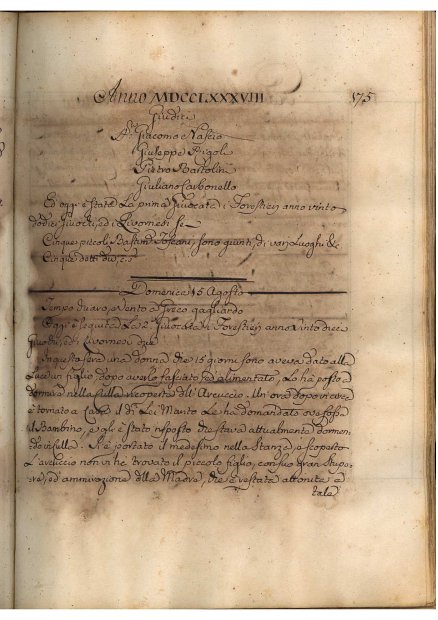 Anno MDCCLXXXVIII 175
Giudici
Giacomo Nascio
Giuseppe Rigoli
Pietro Bartolini
Giuliano Carbonello
Ed oggi è stata La prima Giuocata i Forestieri anno vinto
dodici Giuochi, ed i Livornesi se
Cinque piccoli Bastim Toscani, sono giunti, di varj Luoghi &c
Cinque detti
Domenica 15 Agosto
Tempo vento a Greco gagliardo
Oggi è seguita La 2 Giuocata i Forestieri anno vinto diece
Giuochi, ed i Livornesi due
In questa sera una donna che 15 giorni sono aveva dato alla
Luce un figlio, dopo averlo fasciato ed alimentato, Lo ha posto a
dormire nella culla ricoperta dell'Arcuccio. Un'ora dopo in circa
è tornato a Casa il di Lei Marito Le ha domandato ove fosse
il Bambino, e gli è stato risposto che stava attualmente dormen-
do in Culla. Si è portato il medesimo nella Stanza, e scoperto
L'arcuccio non vi he trovato il piccolo figlio, con suo gran Stupo-
re, ed ammirazione della Madre, che è restata attonita a
tale